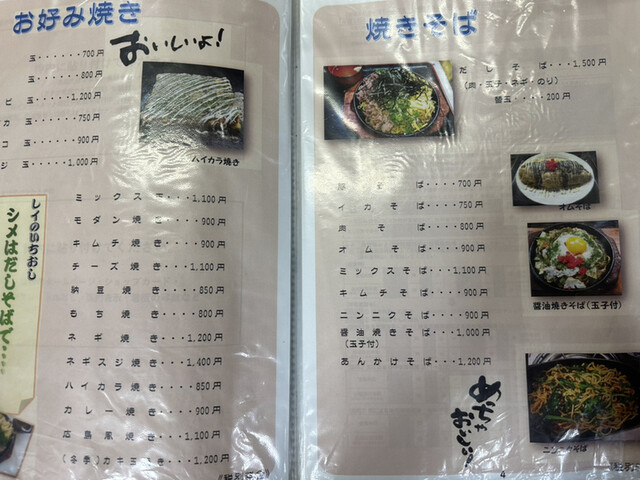 お好み焼き
おいしいよ!
玉・・・・・700円
玉・・・・・800円
ビ玉・・・・・1,200円
カ玉・・・・・750円
コ玉・・・・・900円
ジ玉・・・・・1,000円
ハイカラ焼き
ミックス玉・・・1,100円
モダン焼き・・・・900円
キムチ焼き・・・・900円
チーズ焼き・・・1,100円
納豆焼き・・・・850円
もち焼き・・・・800円
ネギ焼き・・・1,200円
ネギスジ焼き・・・1,400円
ハイカラ焼き・・・・850円
カレー焼き・・・・900円
広島風焼き・・・1,100円
(冬季)カキ玉焼き・・・1,200円
レイのいちおし
シメはだしそばで・・・・
焼きそば
だしそば・・・1,500円
(肉・玉子・ネギ・のり)
替玉・・・200円
そば・・・・700円
イカそば・・・・750円
肉そば・・・・800円
オムそば・・・・900円
ミックスそば・・・1,100円
キムチそば・・・・900円
ニンニクそば・・・・900円
醤油焼きそば・・・1,000円
(玉子付)
あんかけそば・・・1,200円
オムそば
醤油焼きそば(玉子付)
ニンニクそば
めっちゃおいしい!
4